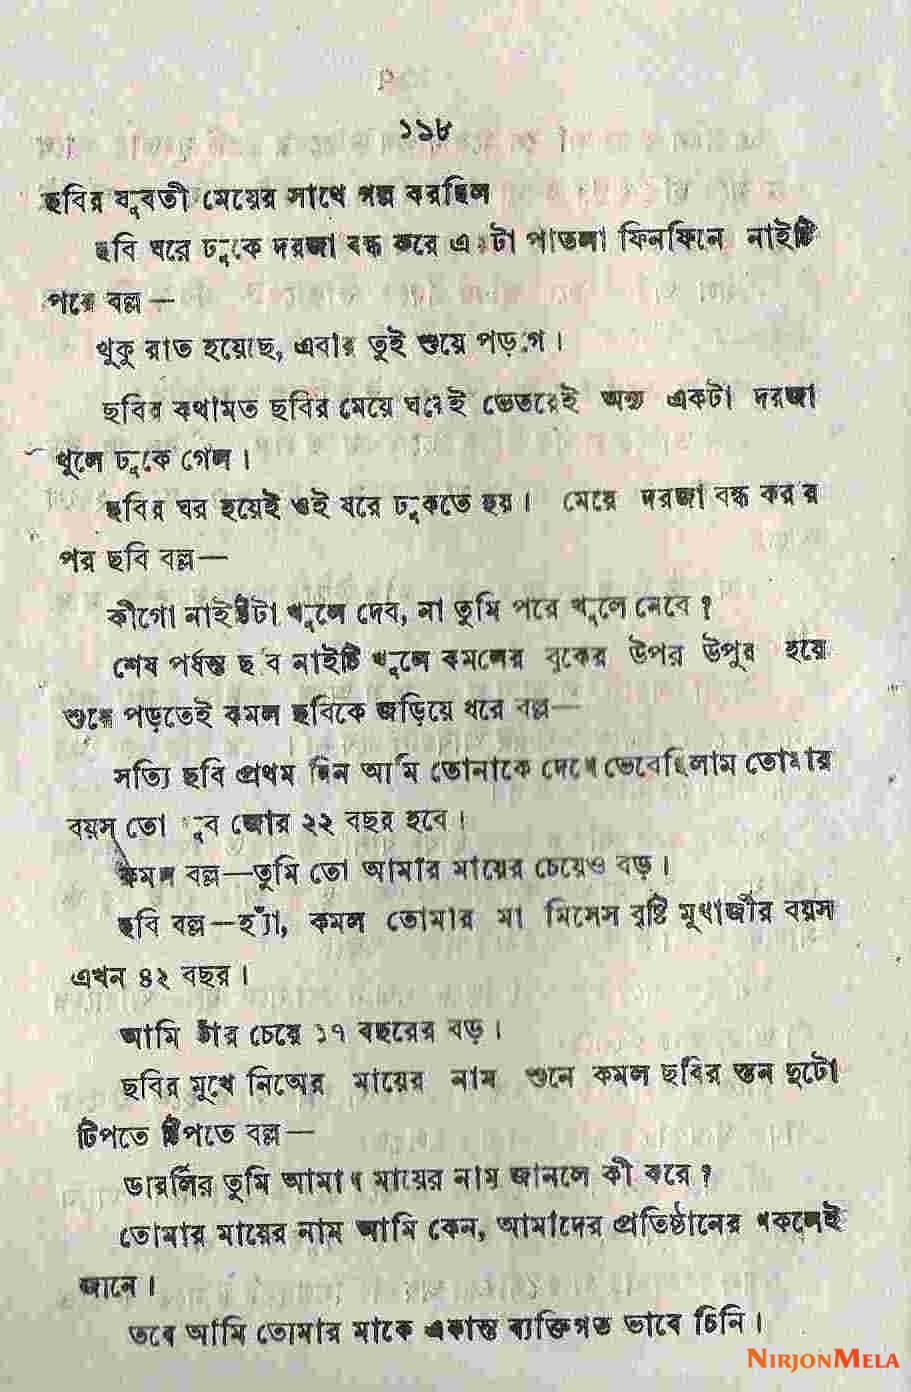 ১১৮
ছবির যুবতী মেয়ের সাথে গল্প করছিল
ছবি ঘরে ঢুকে দরজা বন্ধ করে একটা পাতলা ফিনফিনে নাইটি
পরে বল্ল—
খুকু রাত হয়েছে, এবার তুই শুয়ে পড়গে।
ছবির কথামত ছবির মেয়ে ঘরেই ভেতরেই অন্য একটা দরজা
খুলে ঢুকে গেল।
ছবির ঘর হয়েই ওই ঘরে ঢুকতে হয়। মেয়ে দরজা বন্ধ করার
পর ছবি বল্ল—
কীগো নাইটিটা খুলে দেব, না তুমি পরে খুলে নেবে?
শেষ পর্যন্ত ছবি নাইটি খুলে কমলের বুকের উপর উপুর হয়ে
শুয়ে পড়তেই কমল ছবিকে জড়িয়ে ধরে বল্ল—
সত্যি ছবি প্রথম দিন আমি তোমাকে দেখে ভেবেছিলাম তোমার
বয়স তো খুব জোর ২২ বছর হবে।
কমল বল্ল—তুমি তো আমার মায়ের চেয়েও বড়।
ছবি বল্ল—হ্যাঁ, কমল তোমার মা মিসেস বৃষ্টি মুখার্জীর বয়স
এখন ৪২ বছর।
আমি তার চেয়ে ১৭ বছরের বড়।
ছবির মুখে নিজের মায়ের নাম শুনে কমল ছবির স্তন দুটো
টিপতে টিপতে বল্ল—
ডারলিং তুমি আমার মায়ের নাম জানলে কী করে?
তোমার মায়ের নাম আমি কেন, আমাদের প্রতিষ্ঠানের সকলেই
জানে।
তবে আমি তোমার মাকে একান্ত ব্যক্তিগত ভাবে চিনি।
NIRJONMELA